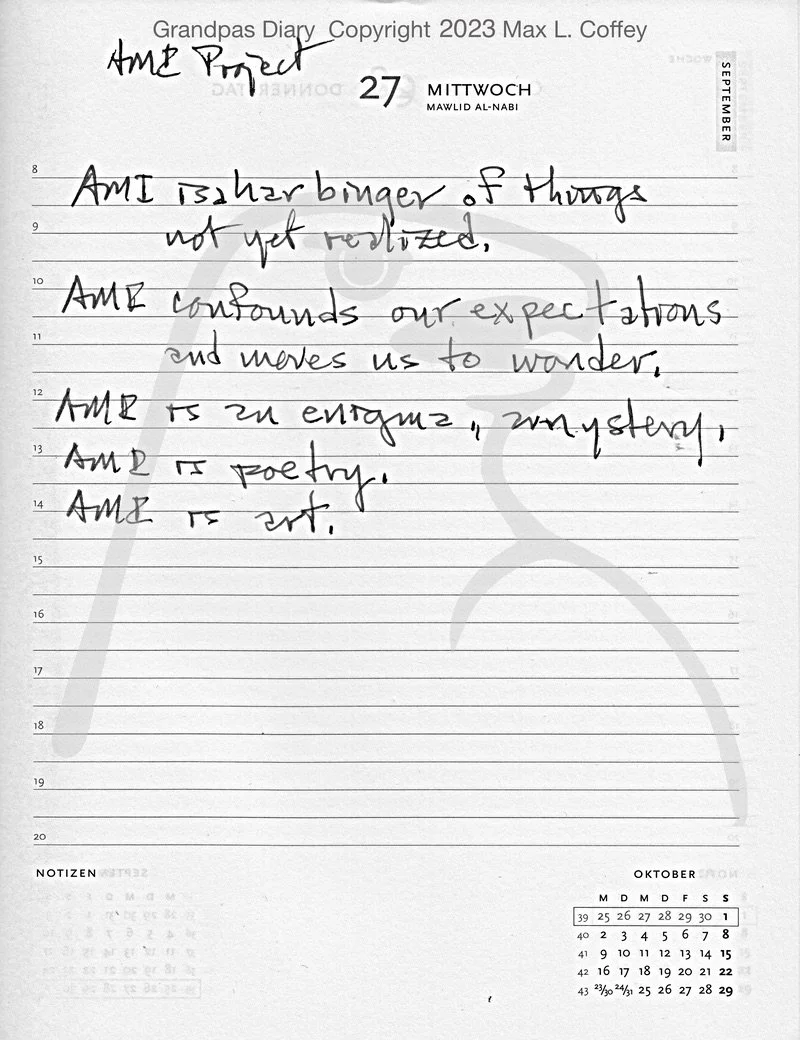 Grandpas Diary Copyright 2023 Max L. Coffey
AME Project
27 MITTWOCH
MAWLID AL-NABI
SEPTEMBER
8
AMI is a harbinger of things
9
not yet realized.
10
AME confounds our expectations
11
and moves us to wonder.
12
AME is an enigma, a mystery,
13
AME is poetry.
14
AME is art.
15
16
17
18
19
20
NOTIZEN
OKTOBER
M D M D F S S
39 25 26 27 28 29 30 1
40 2 3 4 5 6 7 8
41 9 10 11 12 13 14 15
42 16 17 18 19 20 21 22
43 23/30 24/31 25 26 27 28 29